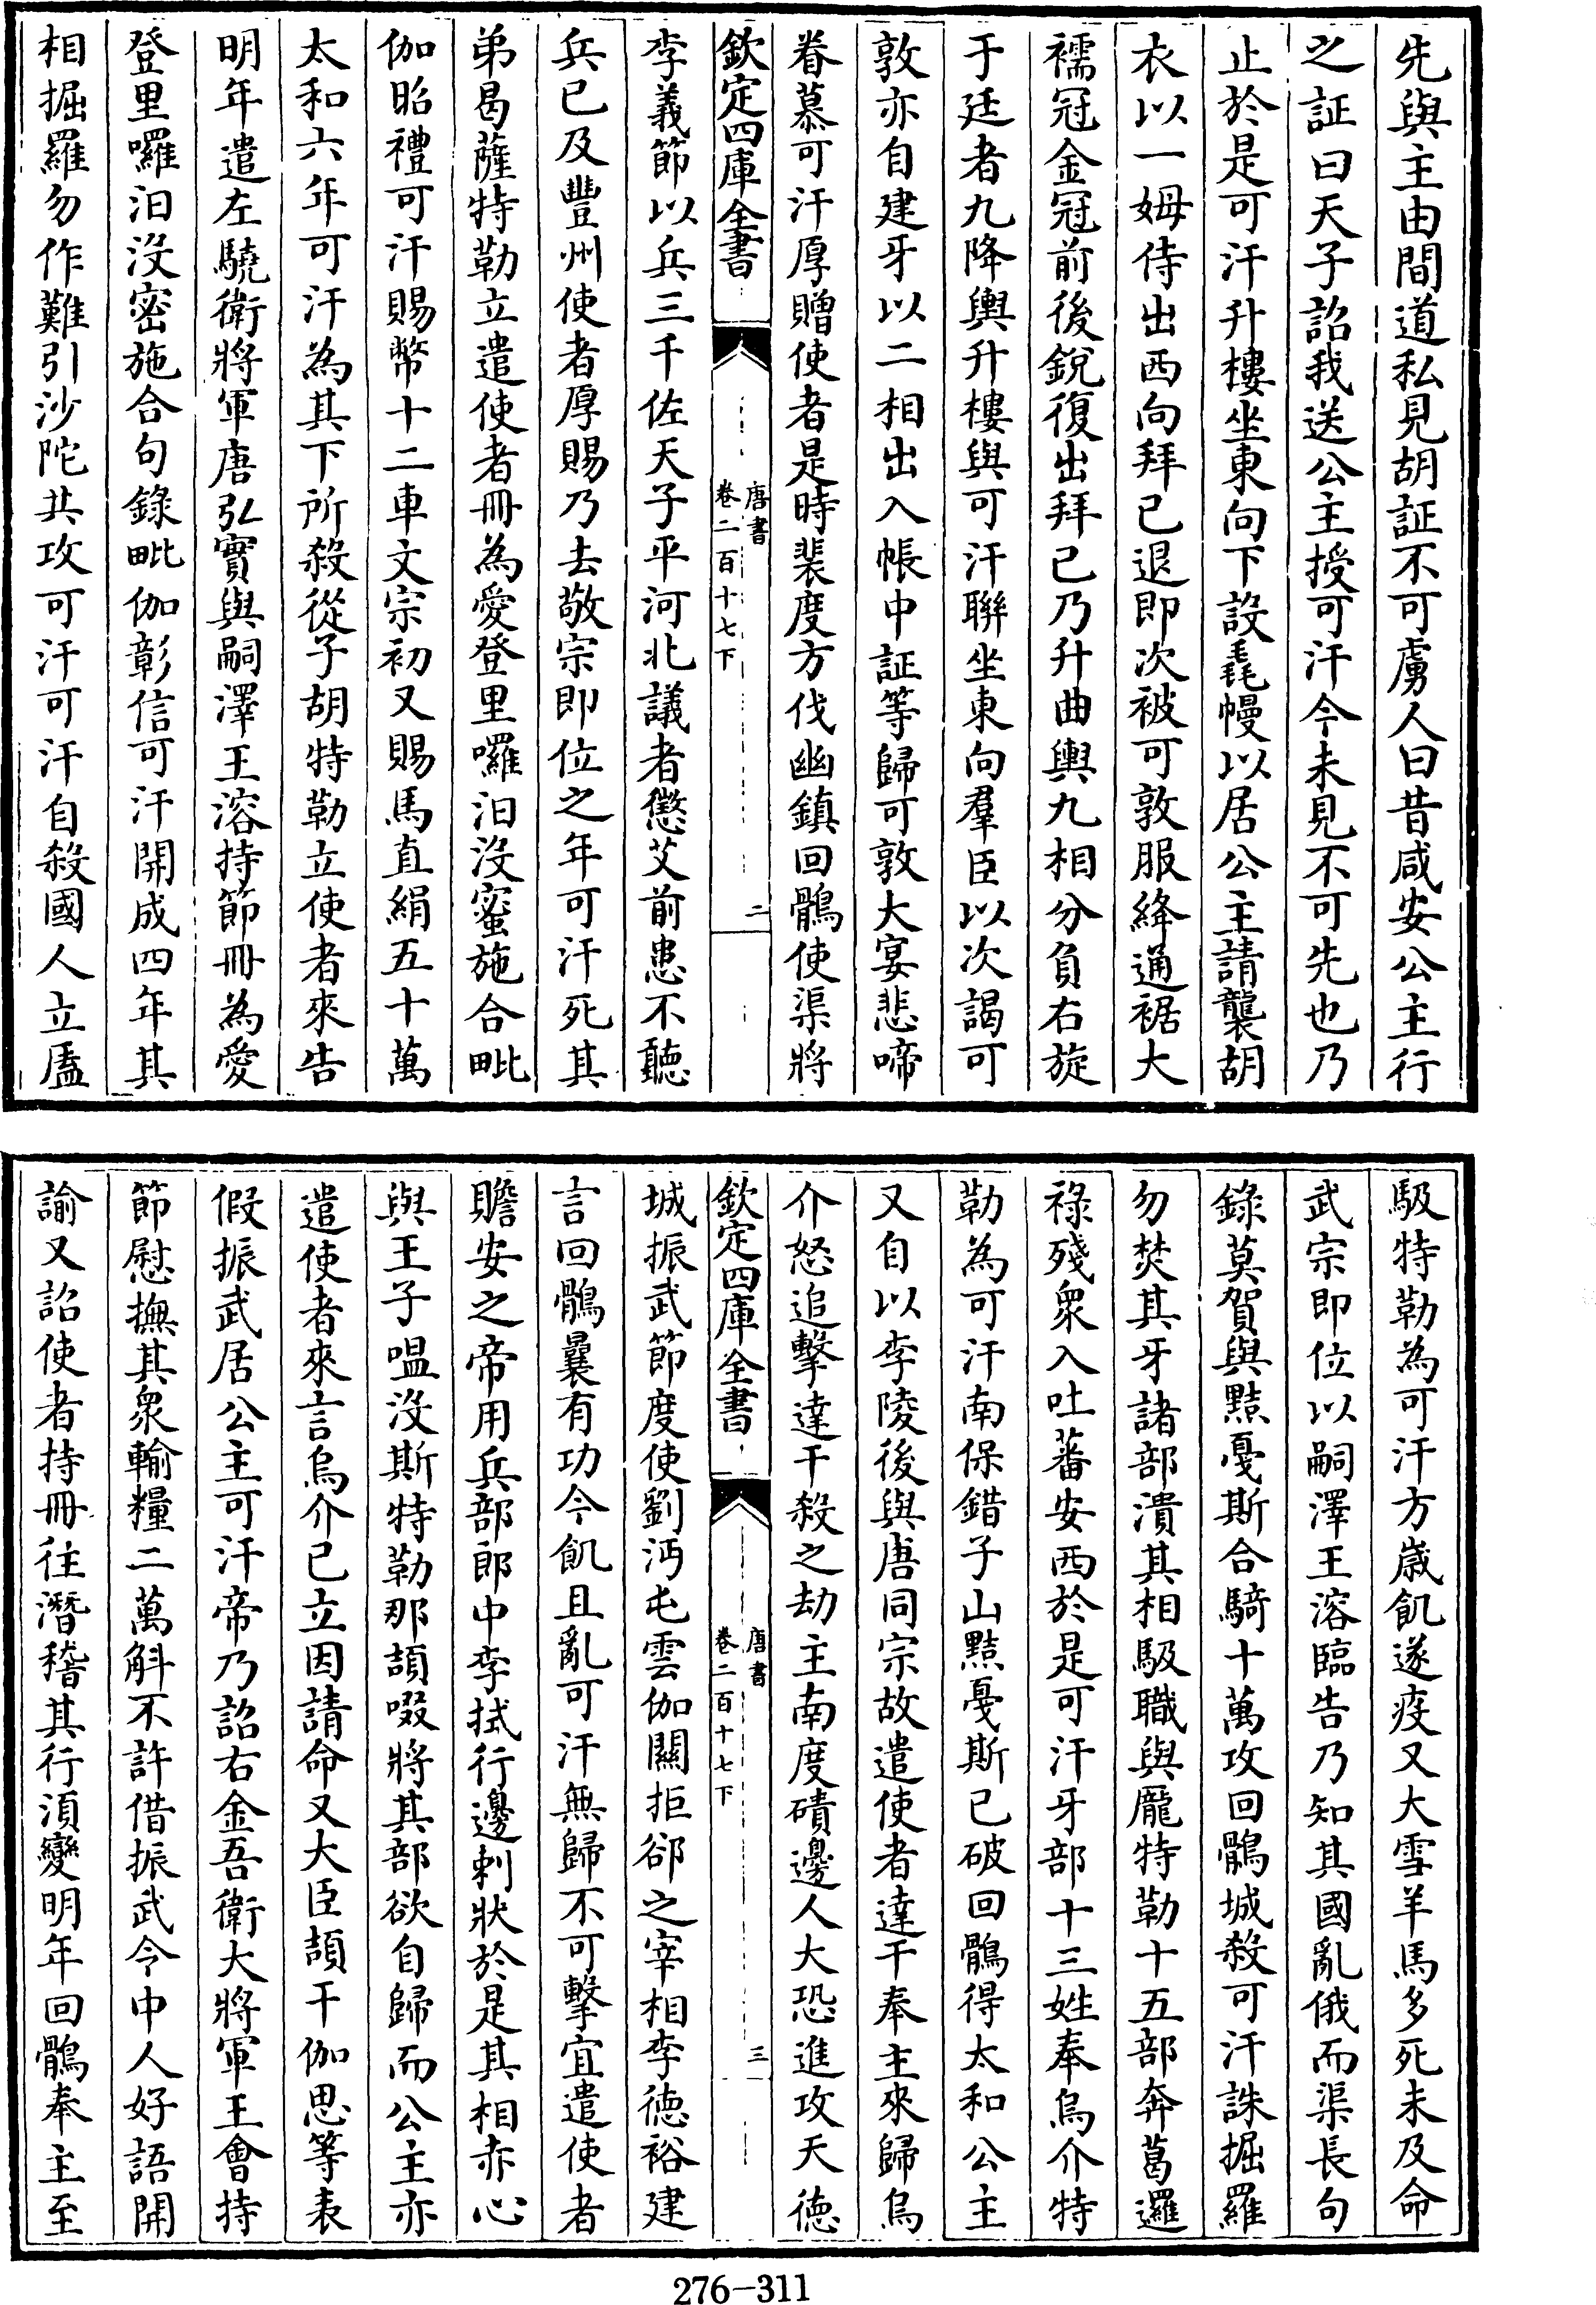 先與主由間道私見胡証不可虜人曰昔咸安公主行
之証曰天子詔我送公主授可汗今未見不可先也乃
止於是可汗升樓坐東向下設毳幔以居公主請襲胡
衣以一姆侍出西向拜已退即次被可敦服絳通裾大
襦冠金冠前後銳復出拜已乃升曲輿九相分負右旋
于廷者九降輿升樓與可汗聯坐東向羣臣以次謁可
敦亦自建牙以二相出入帳中証等歸可敦大宴悲啼
眷慕可汗厚贈使者是時裴度方伐幽鎮回鶻使渠將
欽定四庫全書
唐書
卷二百十七下
二
李義節以兵三千佐天子平河北議者懲艾前患不聽
兵已及豐州使者厚賜乃去敬宗即位之年可汗死其
弟曷薩特勒立遣使者冊為愛登里囉汨沒蜜施合毗
伽昭禮可汗賜幣十二車文宗初又賜馬直絹五十萬
太和六年可汗為其下所殺從子胡特勒立使者來告
明年遣左驍衛將軍唐弘實與嗣澤王溶持節冊為愛
登里囉汨沒密施合句錄毗伽彰信可汗開成四年其
相掘羅勿作難引沙陀共攻可汗可汗自殺國人立㕎
馺特勒為可汗方歲飢遂疫又大雪羊馬多死未及命
武宗即位以嗣澤王溶臨告乃知其國亂俄而渠長句
錄莫賀與黠戛斯合騎十萬攻回鶻城殺可汗誅掘羅
勿焚其牙諸部潰其相馺職與厖特勒十五部奔葛邏
祿殘衆入吐蕃安西於是可汗牙部十三姓奉烏介特
勒為可汗南保錯子山黠戛斯已破回鶻得太和公主
又自以李陵後與唐同宗故遣使者達干奉主來歸烏
介怒追擊達干殺之劫主南度磧邊人大恐進攻天德
欽定四庫全書
唐書
卷二百十七下
三
城振武節度使劉沔屯雲伽關拒郤之宰相李德裕建
言回鶻曩有功今飢且亂可汗無歸不可擊宜遣使者
贍安之帝用兵部郎中李拭行邊刺狀於是其相赤心
與王子嗢沒斯特勒那頡啜將其部欲自歸而公主亦
遣使者來言烏介已立因請命又大臣頡干伽思等表
假振武居公主可汗帝乃詔右金吾衛大將軍王會持
節慰撫其衆輸糧二萬斛不許借振武令中人好語開
諭又詔使者持冊往潛稽其行湏變明年回鶻奉主至
276-311